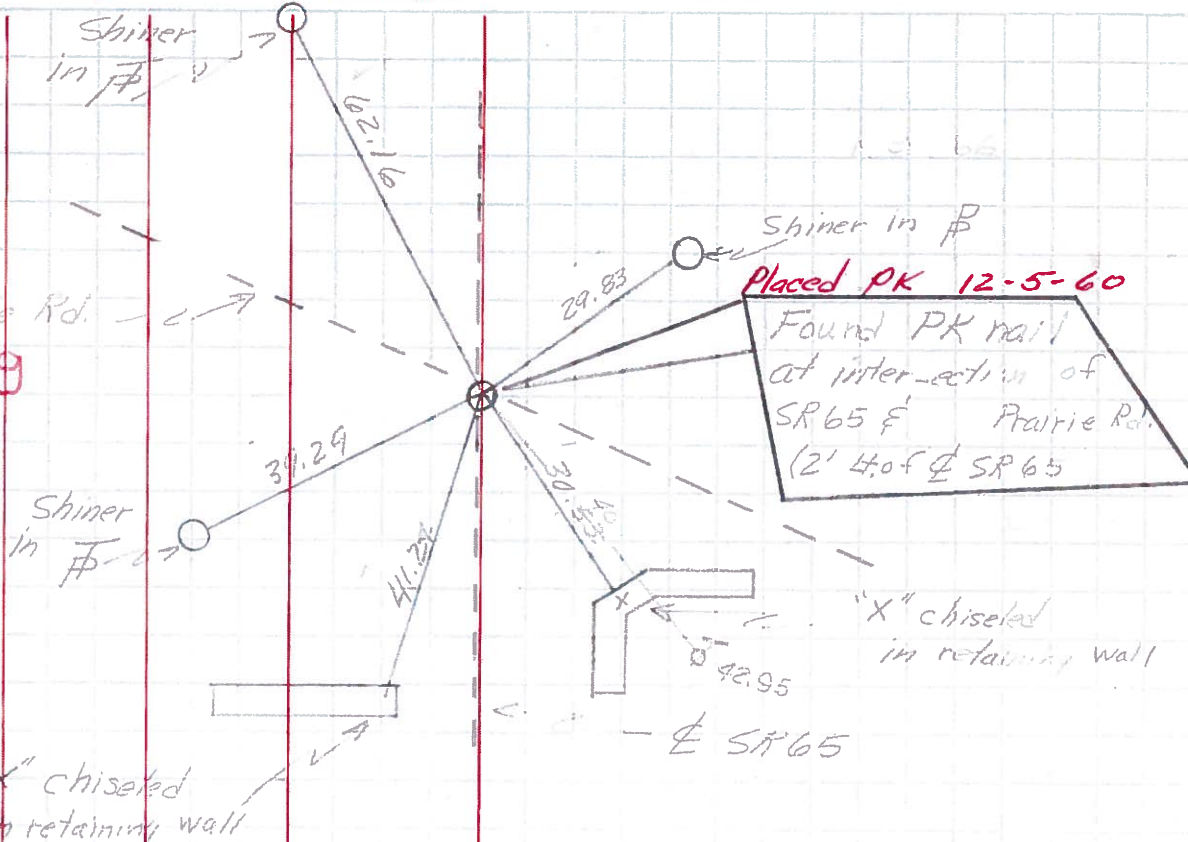 Shiner
in
62.16
Shiner in
29.83
Placed PK 12-5-60
Found PK nail
at of
SR 65 & Prairie Rd.
(2' of ℄ SR 65
Rd.
39.29
Shiner
in
41.29
30.
42.95
"X" chiseled
in retaining wall
℄ SR 65
X" chiseled
retaining wall